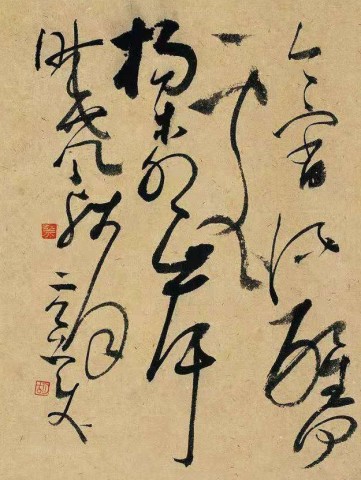 今宵酒醒何
處
楊柳岸
曉風殘月